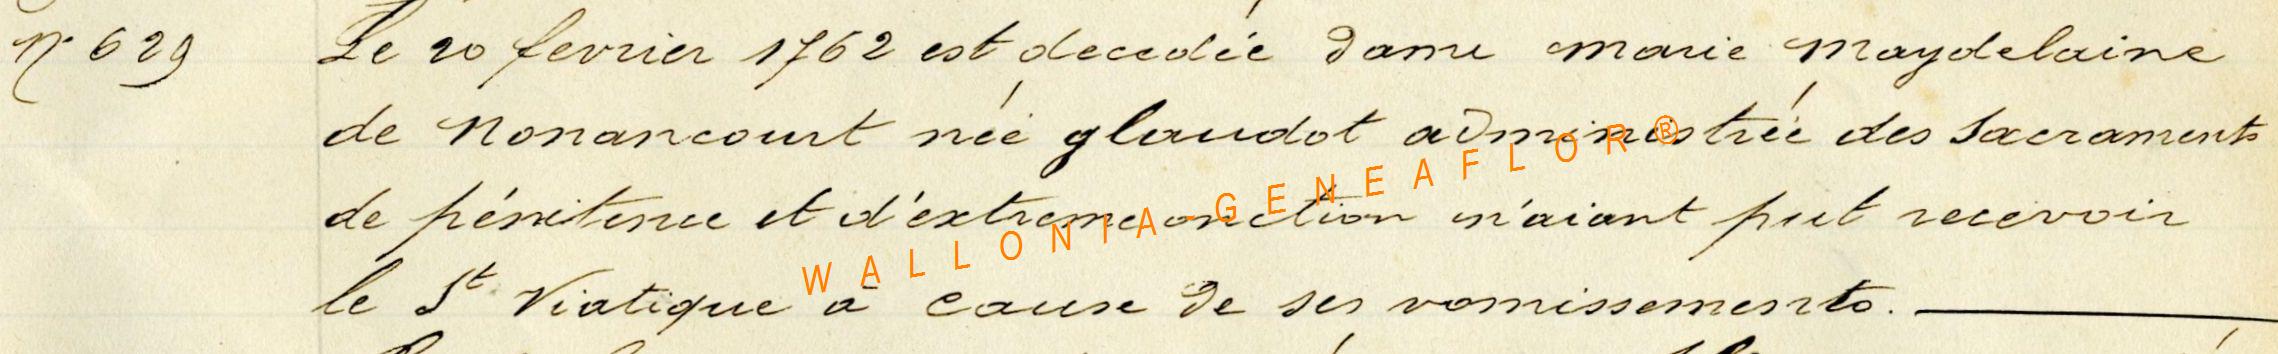 N° 629 Le 20 fevrier 1762 est decedée dame marie Maydelaine
de Nonancourt née glaudot administrée des Sacraments
de pénitence et d'extremeonction n'aiant put recevoir
le St Viatique à cause de ses vomissements.
WALLONIA-GENEAFLOR®